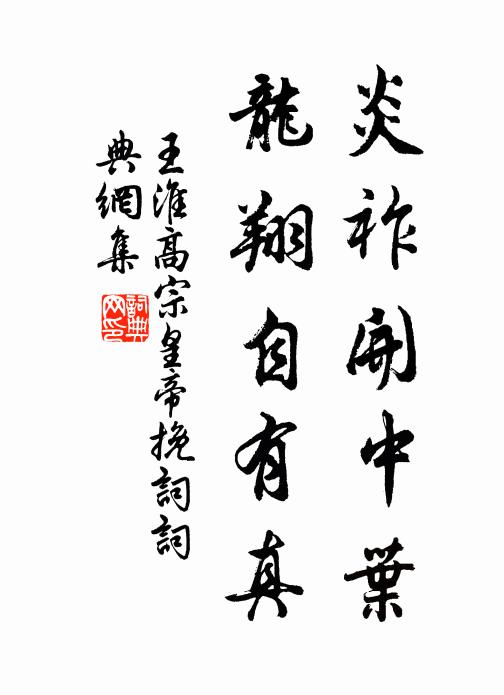 炎祚開中葉
龍翔自有真
王淮高宗皇帝挽詞詞
典網集
詞典网印